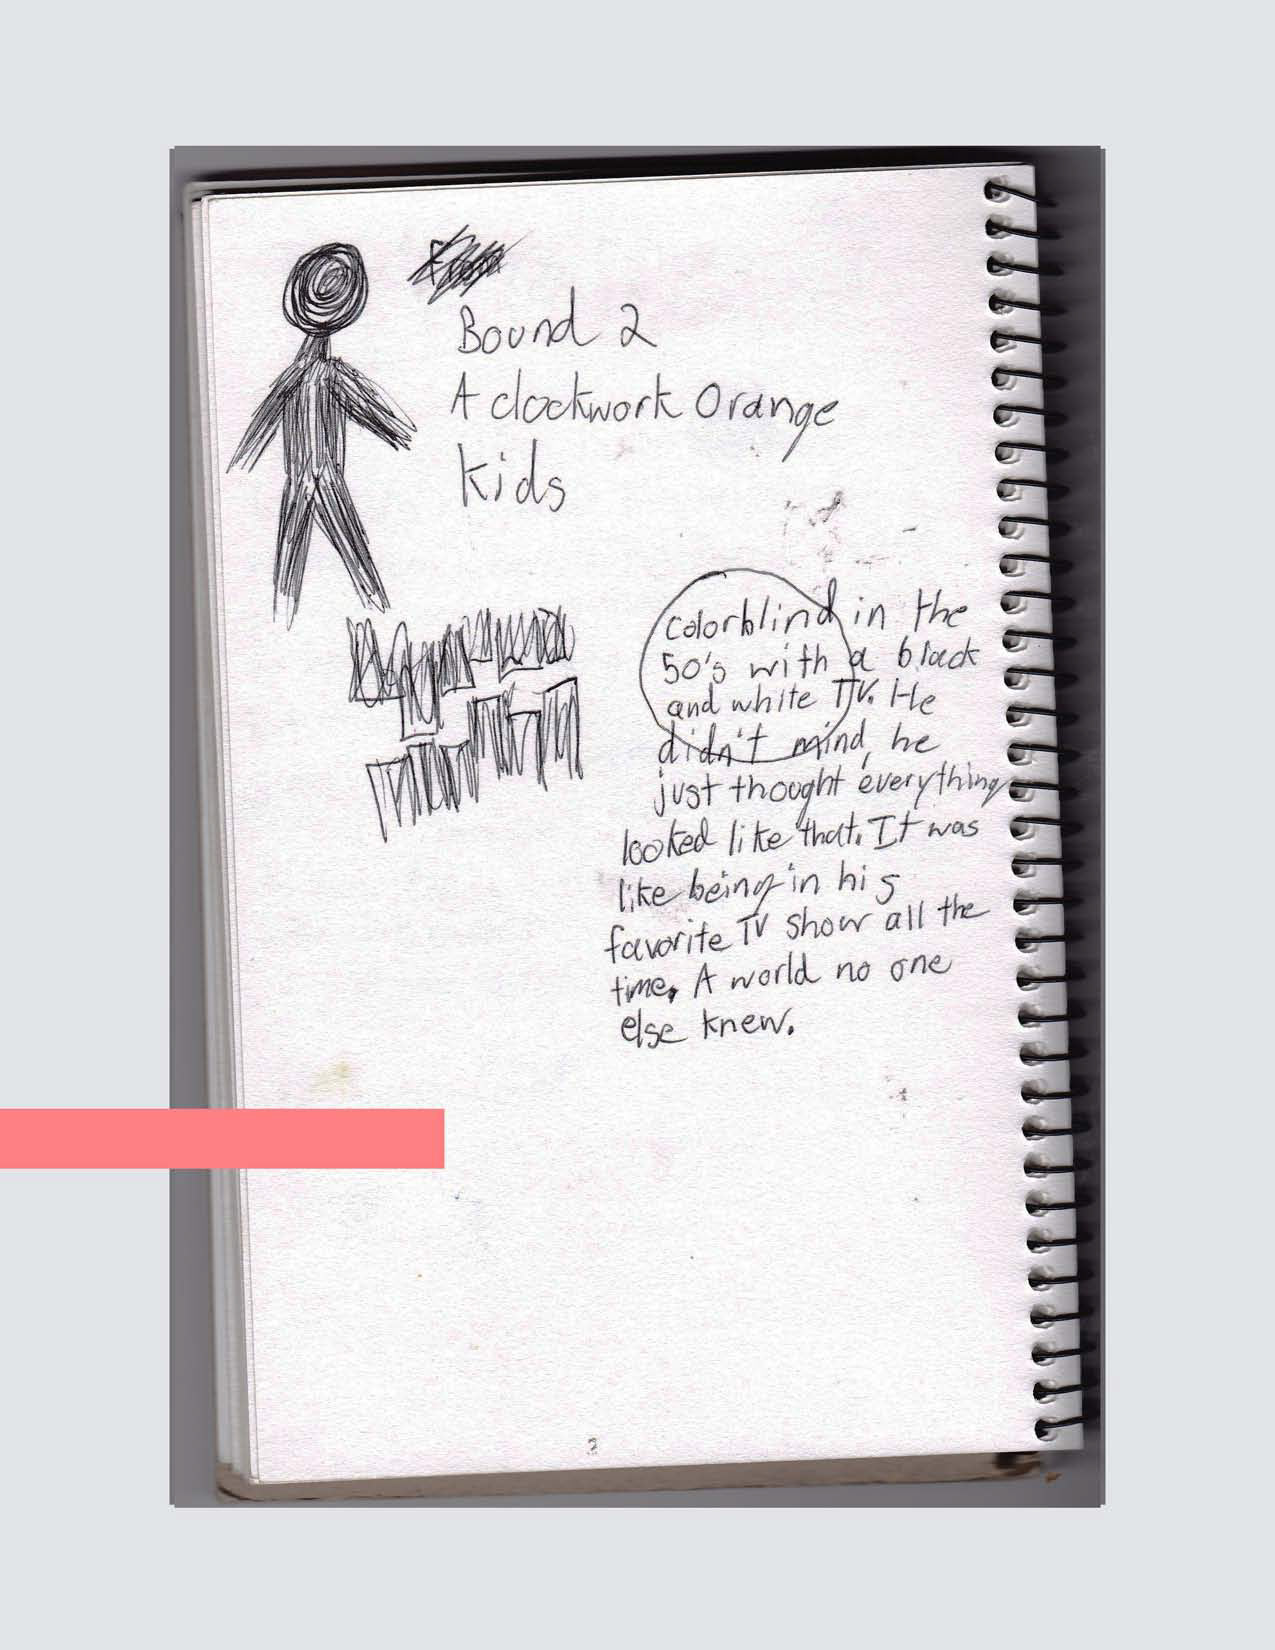 Bound 2
A clockwork Orange
Kids
colorblind in the
50's with a black
and white TV. He
didn't mind, he
just thought everything
looked like that. It was
like being in his
favorite TV show all the
time. A world no one
else knew.